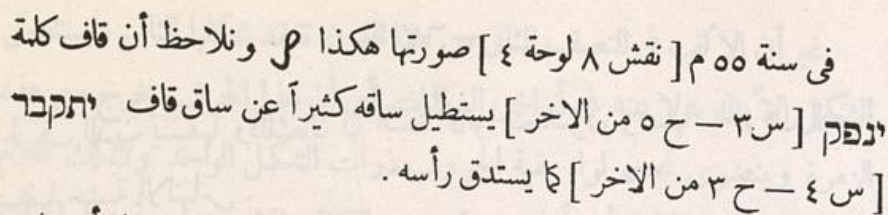 فى سنة ٥٥ م [ نقش ٨ لوحة ٤ ] صورتها هكذا و نلاحظ أن قاف كلمة
ינפק [ س ٣ — ح ٥ من الاخر ] يستطيل ساقه كثيراً عن ساق قاف יתקבר
[ س ٤ — ح ٣ من الاخر ] كما يستدق رأسه .